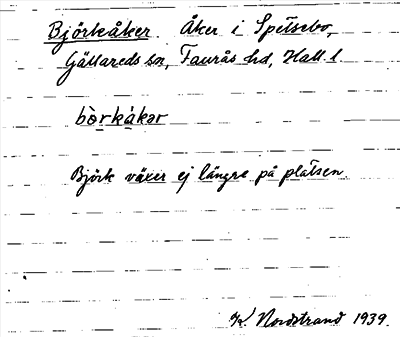 Björkåker. Åker i Spetsebo,
Gällareds sn, Faurås hd, Hall. l.
bö̀rkåkər
Björk växer ej längre på platsen.
K. Nordstrand 1939.